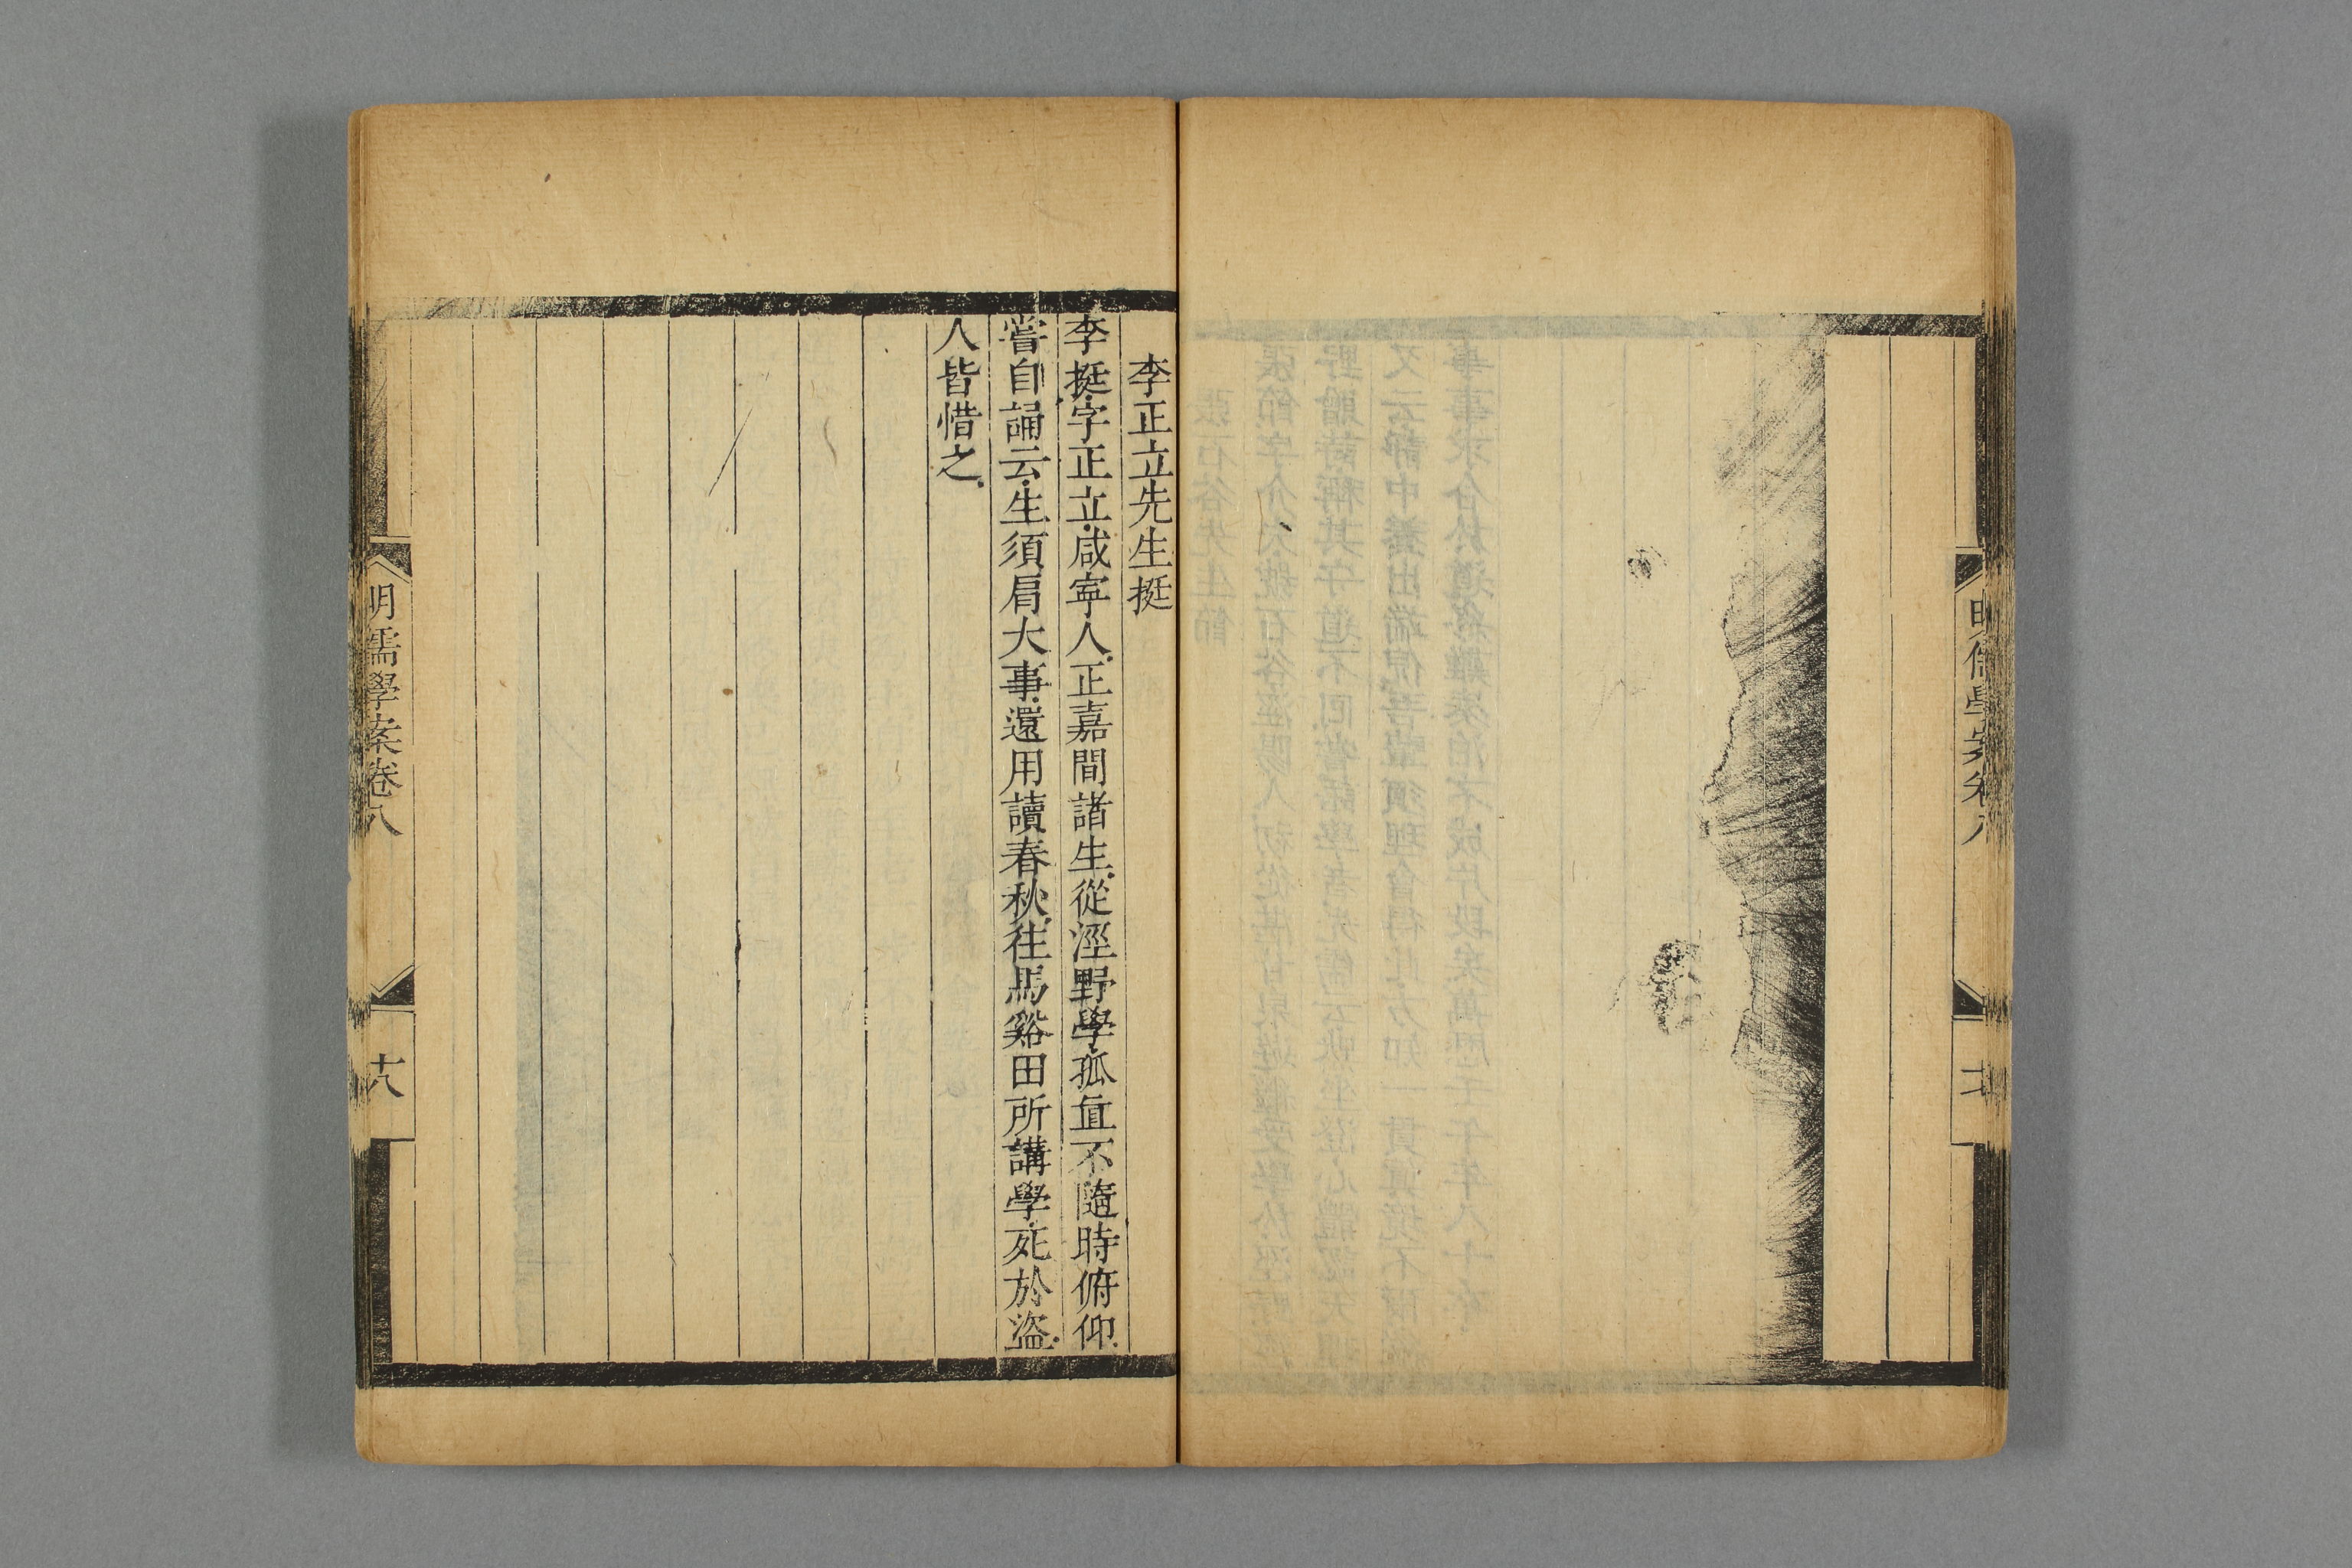 李正立先生挺
李挺字正立咸寧人正嘉間諸生從涇野學孤直不隨時俯仰
嘗自誦云生須肩大事還用讀春秋往馬谿田所講學死於盜
人皆惜之
明儒學案卷八
十八
明儒學案卷八